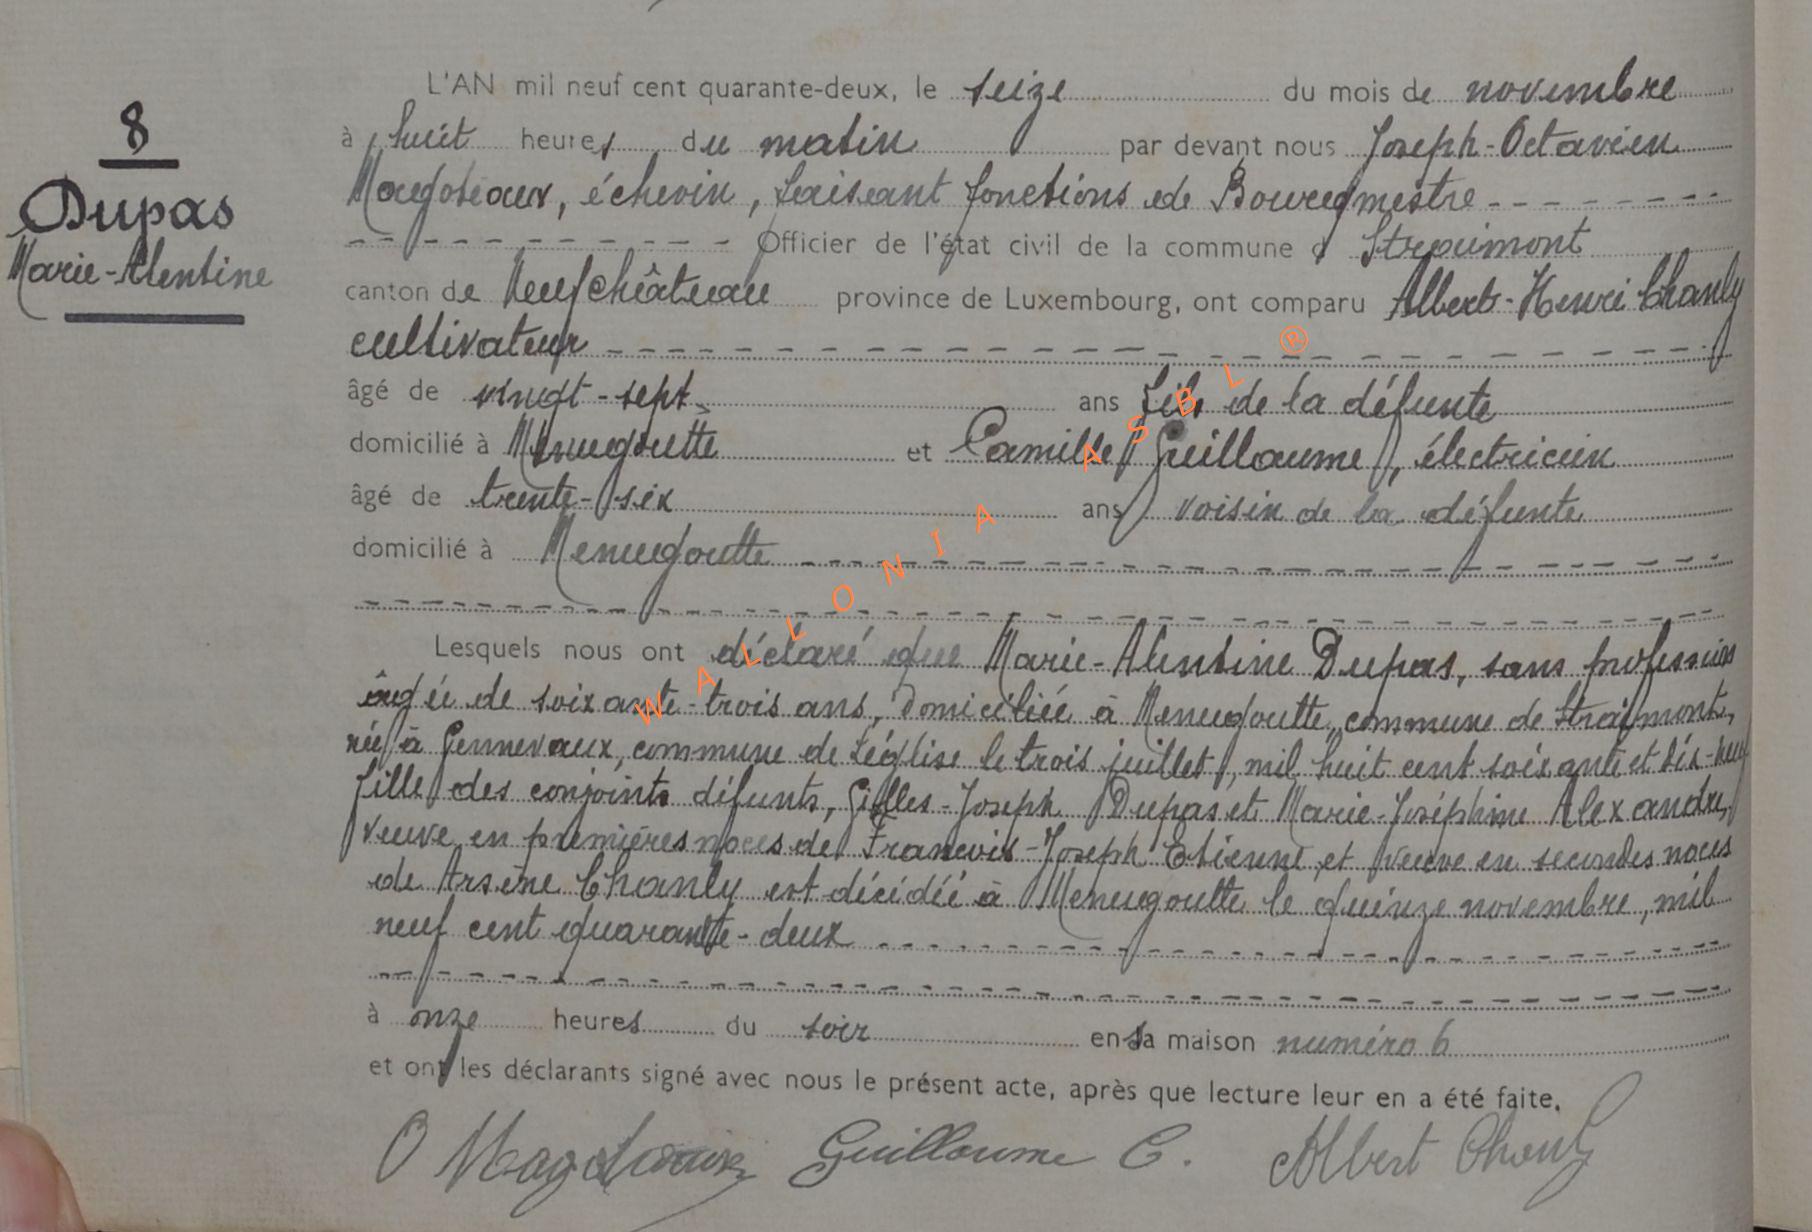 8
Dupas
Marie-Alentine
L'AN mil neuf cent quarante-deux, le seize du mois de novembre
à huit heures du matin par devant nous Joseph-Octavien
Magoteaux, échevin, faisant fonctions de Bourgmestre
Officier de l'état civil de la commune d Straimont
canton de Neufchâteau province de Luxembourg, ont comparu Albert-Henri Chanly
cultivateur
âgé de vingt-sept ans fils de la défunte
domicilié à Menugoutte et Camille Guillaume, électricien
âgé de trente-six ans voisin de la défunte
domicilié à Menugoutte
Lesquels nous ont déclaré que Marie-Alentine Dupas, sans profession
âgée de soixante-trois ans, domiciliée à Menugoutte, commune de Straimont,
née à Gennevaux, commune de Léglise le trois juillet, mil huit cent soixante et dix-neuf
fille des conjoints défunts, Gilles-Joseph Dupas et Marie-Joséphine Alexandre,
veuve en premières noces de François-Joseph Etienne et veuve en secondes noces
de Arsène Chanly est décédée à Menugoutte le quinze novembre, mil
neuf cent quarante-deux
à onze heures du soir en sa maison numéro 6
et ont les déclarants signé avec nous le présent acte, après que lecture leur en a été faite.
O Magoteaux Guillaume C. Albert Chanly
WALLONIA ASBL ®